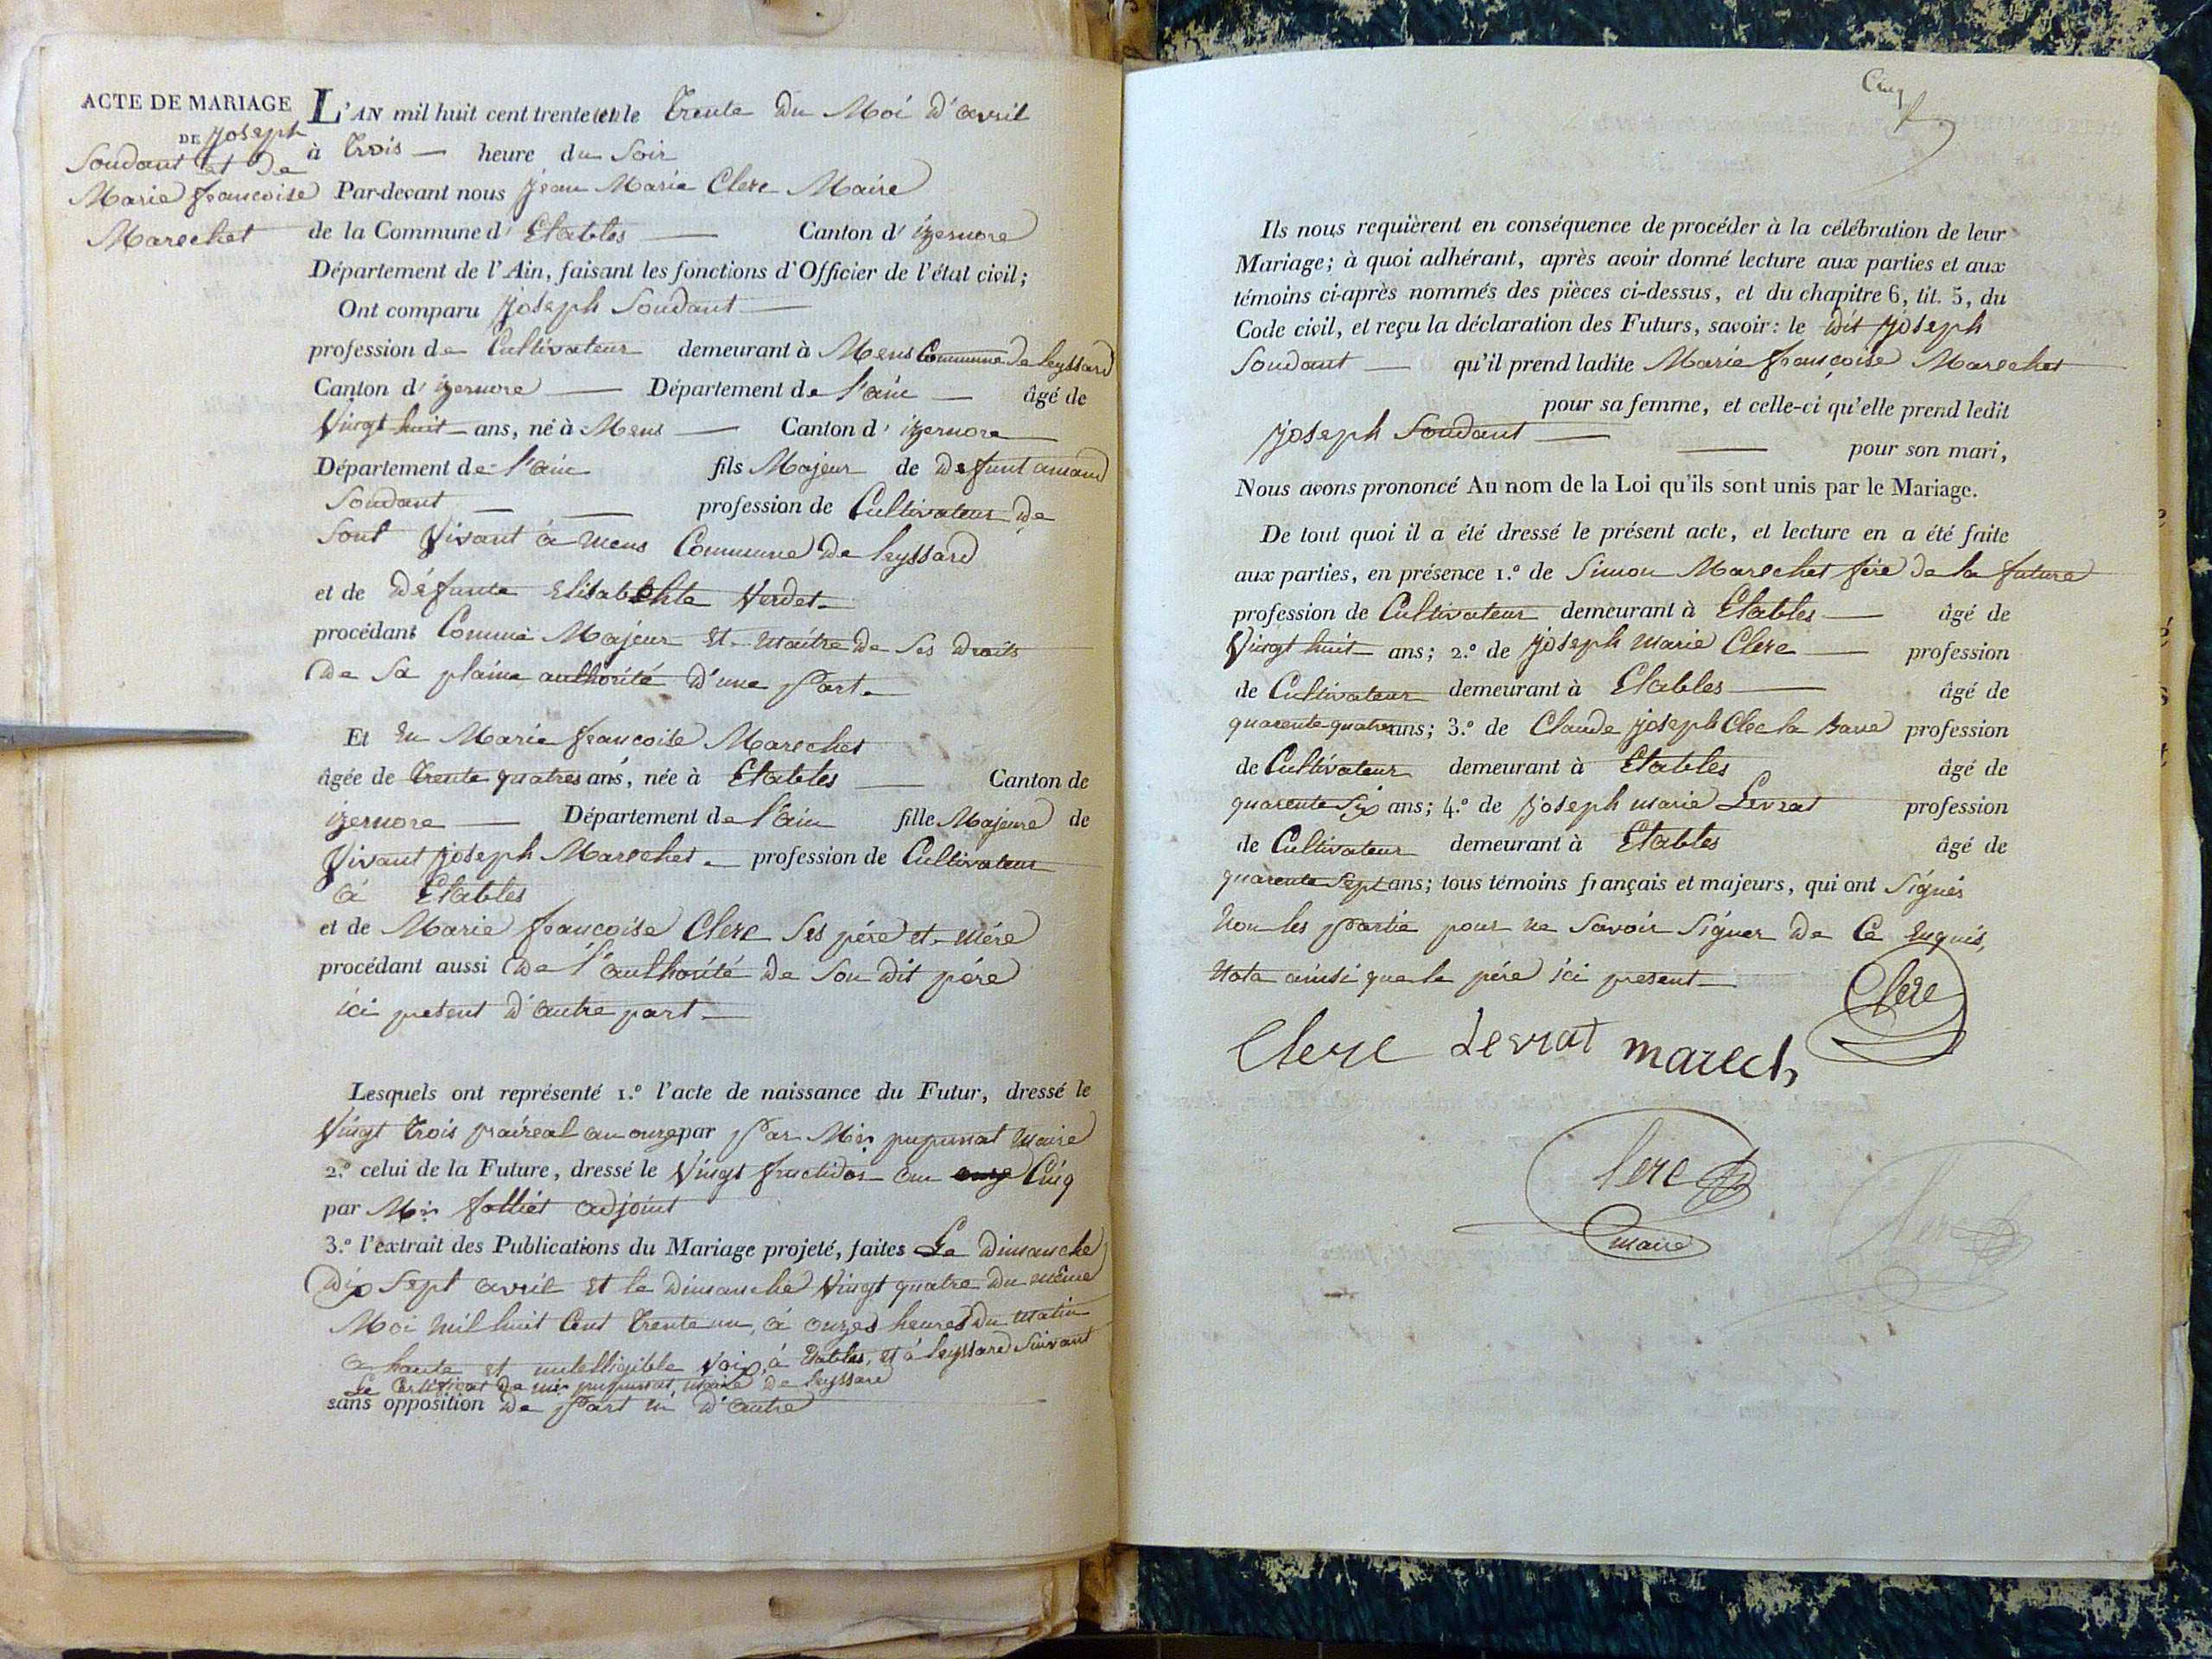 ACTE DE MARIAGE
DE Joseph
Soudant et De
Marie francoise
Marechet
L'AN mil huit cent trente et le Trente Du Moi D'avril
à Trois — heure du Soir
Par-devant nous Jean Marie Clerc Maire
de la Commune d' Etables — Canton d' izernore
Département de l'Ain, faisant les fonctions d'Officier de l'état civil;
Ont comparu Joseph Soudant —
profession de Cultivateur demeurant à Mens Commune De Leyssard
Canton d' izernore — Département de l'ain — âgé de
Vingt huit ans, né à Mens — Canton d' izernore
Département de l'ain fils Majeur de Defunt amand
Soudant — — profession de Cultivateur De
Sont Vivant à Mens Commune De Leyssard
et de Défunte Elisabehte Verdet
procédant Comme Majeur et Maitre De Ses Droits
De Sa plaine authorité D'une Part
Et En Marie francoise Marechet
âgée de Trente quatres ans, née à Etables — Canton de
izernore — Département de l'ain fille Majeure de
Vivant Joseph Marechet profession de Cultivateur
à Etables
et de Marie francoise Clerc Ses pére et Mére
procédant aussi De l'authorité De Son Dit pére
ici present D'autre part —
Lesquels ont représenté 1.° l'acte de naissance du Futur, dressé le
Vingt Trois praireal an onze par Par Mir pupunat Maire
2.° celui de la Future, dressé le Vingt fructidor an onze Cinq
par Mir folliet adjoint
3.° l'extrait des Publications du Mariage projeté, faites Le Dimanche
Dix Sept avril et le Dimanche Vingt quatre Du même
Moi Mil huit Cent Trente un, à onzes heures Du Matin
a haute et intelligible Voix, à Etables, et à Leyssard Suivant
Le Certificat De Mir pupunat, Maire De Leyssard
sans opposition De Part ni D'autre
Cinq
Ils nous requièrent en conséquence de procéder à la célébration de leur
Mariage; à quoi adhérant, après avoir donné lecture aux parties et aux
témoins ci-après nommés des pièces ci-dessus, et du chapitre 6, tit. 5, du
Code civil, et reçu la déclaration des Futurs, savoir: le Dit Joseph
Soudant — qu'il prend ladite Marie françoise Marechet
pour sa femme, et celle-ci qu'elle prend ledit
Joseph Soudant — — pour son mari,
Nous avons prononcé Au nom de la Loi qu'ils sont unis par le Mariage.
De tout quoi il a été dressé le présent acte, et lecture en a été faite
aux parties, en présence 1.° de Simon Marechet frère De la future
profession de Cultivateur demeurant à Etables — âgé de
Vingt huit ans; 2.° de Joseph Marie Clerc — profession
de Cultivateur demeurant à Etables — âgé de
quarente quatre ans; 3.° de Claude Joseph Clec la profession
de Cultivateur demeurant à Etables âgé de
quarente Six ans; 4.° de Joseph Marie Levrat profession
de Cultivateur demeurant à Etables âgé de
quarente Sept ans; tous témoins français et majeurs, qui ont Signés
Non les Partie pour ne Savoir Signer De Ce Enquis,
Nota ainsi que le pére ici present —
Clerc
Clerc Levrat marech
Clerc
maire